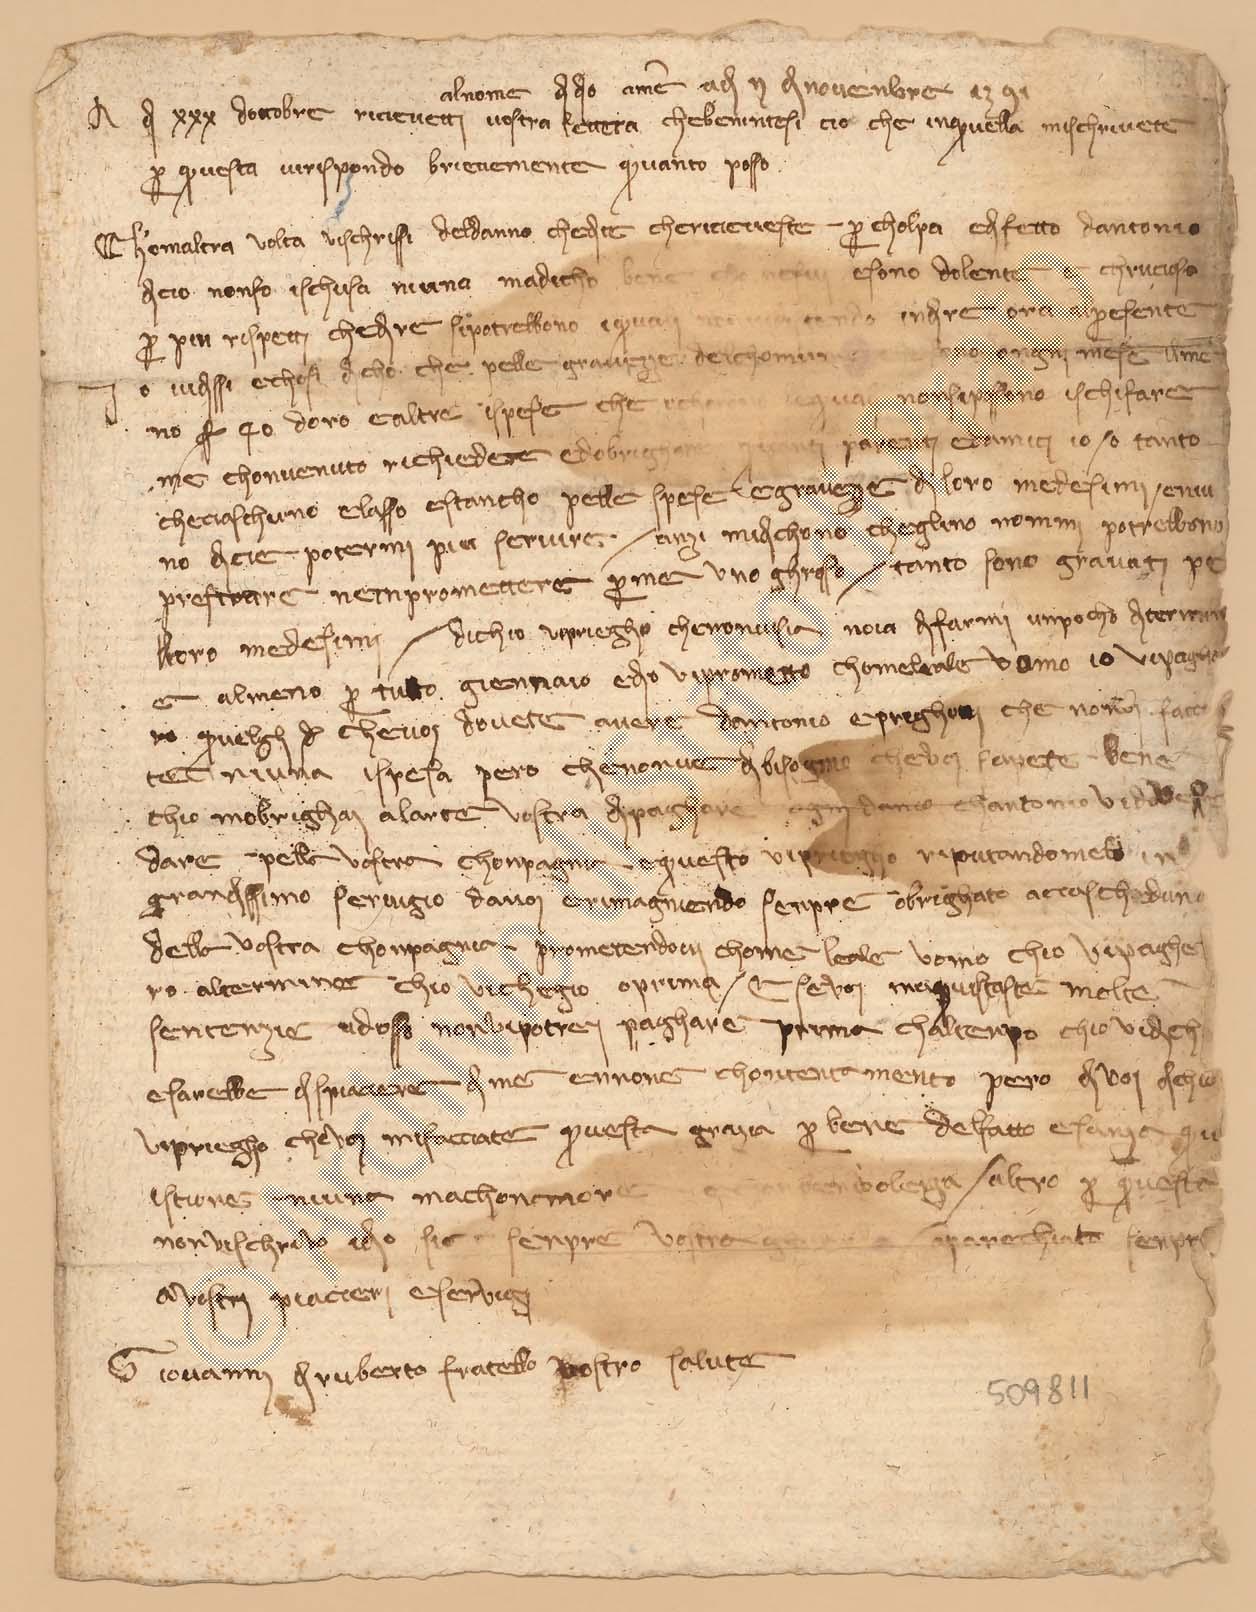 al nome di dio ame adi 11 di novenbre 1391
A di xxx dottobre ricievetti vostra lettera che bene intesi cio che in quella mi schrivete
p questa vi rispondo brievemente quanto posso
Chome altra volta vi schrissi del danno che dite che ricieveste p cholpa e difetto dantonio
dicio non fo ischusa niuna ma dicho bene e sono dolente e chrucioso
p piu rispetti che dire si potrebbono i quali in dire ora al presente
Io vi dissi e chosi dicho che pelle gravezze del chomune ongni mese
no f 40 doro e altre ispese che non si possono ischifare
me chonvenuto richiedere ed obrighare quanti parenti ed amici io o tanto
che ciaschuno e lasso e stancho pelle spese e gravezze di loro medesimi / e niu
no dicie potermi piu servire / anzi mi dichono cheglino non mi potrebbono
prestare ne inpromettere p me uno ghrosso / tanto sono gravati pe
lloro medesimi / di chio vi priegho che non vi sia noia di farmi un pocho di termine
e almeno p tutto giennaio ed io vi prometto chome leale uomo io vi pagher
ro quelgli d che voi dovete avere dantonio e prieghovi che non vi facc
te niuna ispesa pero che non ve di bisogno che voi sapete bene
chio mobrighai a larte vostra di paghare ogni danno chantonio vi dovesse
dare pella vostra chonpagnia e questo vi priegho riputandomelo in
grandissimo servigio da voi e rimagniendo senpre obrighato a ciascheduno
della vostra chonpagnia promettendovi chome leale uomo chio vi paghe
ro al termine chio vi chegio o prima / E se voi maquistaste molte
sentenzie adosso non vi potrei paghare prima chal tenpo chio vi dich
e sarebbe dispiaciere di me e nnone chontentamento pero di voi di chio
vi priegho che voi mi facciate questa grazia p bene del fatto e sanza qu
istione niuna ma chon amore e / altro p questa
non vi schrivo idio sie senpre vostra aparechiato senpre
a vostri piacieri e servigi
Giovanni di ruberto fratello vostro salute
509811